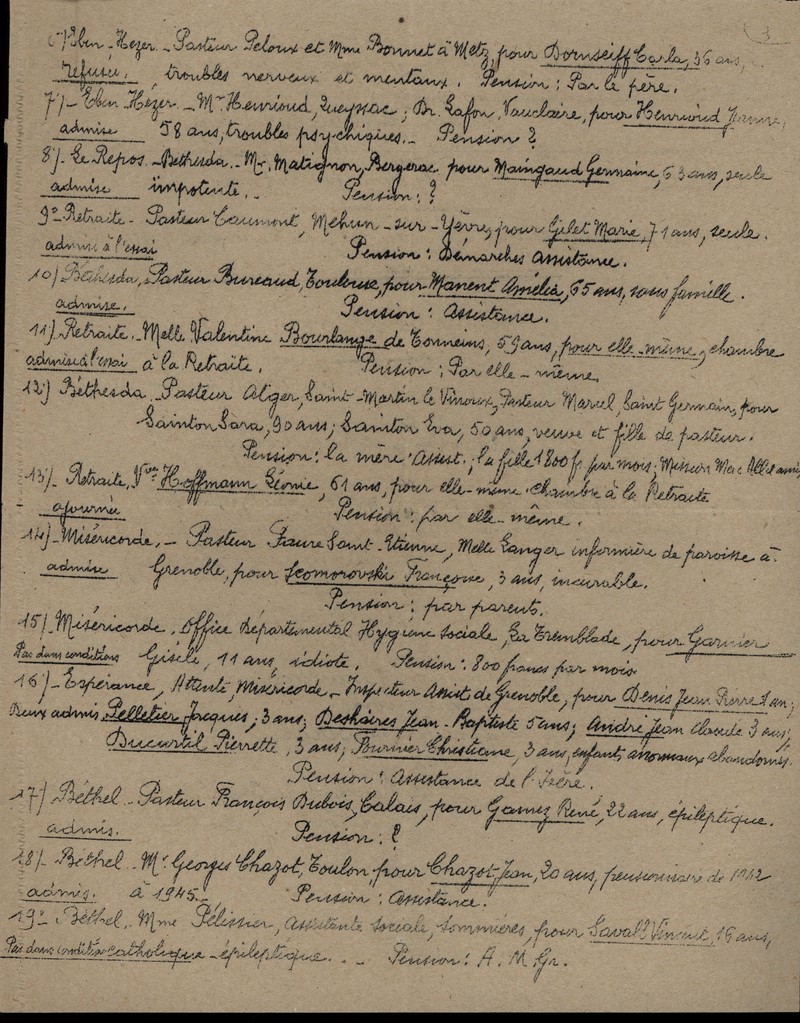 3
6°)Eben-Hezer._Pasteur Peloux et Mme Bonnet à Metz, pour Dornseiff Carla, 36 ans,
refusée. troubles nerveux et mentaux. Pension: Par le père.
7°)- Eben Hézer._ Mr Henrioud, Queyssac; Dr. Lafon, Vauclaire, pour Henrioud Jeanne,
admise 58 ans, troubles psychiques._ Pension ?
8°)- Le Repos._Bethesda._Mr. Matignon, Bergerac pour Maingaud Germaine, 63 ans, seule
admise impotente._ Pension: ?
9°-Retraite- Pasteur Caumont, Mehun-sur-Yèvre, pour Gilet Marie, 71 ans, seule.
admise à l'essai Pension: Démarches Assistance.
10°) Béthesda, Pasteur Bureaud, Toulouse, pour Manent Amélia, 65 ans, sans famille.
admise. Pension: Assistance.
11°) Retraite._Melle Valentine Bourlange de Tonneins, 59 ans, pour elle-même, chambre
admise à l'essai à la Retraite. Pension: Par elle-même.
12°) Béthesda._Pasteur Atger, Saint-Martin le Vinoux, Pasteur Marcel, Saint Germain, pour
Sainton Sara, 90 ans; Sainton Eva, 50 ans, veuve et fille de pasteur.
Pension: la mère: Assist., la fille 1800 fr. par mois; Mission Mac All
13°)- Retraite, Vve Hoffmann Léonie, 61 ans, pour elle-même. chambre à la Retraite
- ajournée Pension: par elle-même.
14°)-Miséricorde._ Pasteur Faure Saint-Etienne, Melle Langer infirmière de paroisse à
admise Grenoble, pour Scomorovski Françoise, 3 ans, incurable.
Pension: par parents.
15°)-Miséricorde, Office Départemental Hygiène sociale, La Tremblade, pour Garnier
Pas dans conditions Gisèle, 11 ans, idiote. Pension: 800 francs par mois.
16°)-Espérance, Attente, Miséricorde._ Inspecteur Assist de Grenoble, pour Denis Jean Pierre 1 an;
Deux admis. Pelletier Jacques, 3 ans; Deshaires Jean-Baptiste 5 ans; André Jean Claude 3 ans;
Ducurtil Pierrette, 3 ans; Fournier Christiane, 3 ans, enfants anormaux abandonnés.
Pension: Assistance de l'Isère.
17°) Béthel._Pasteur François Dubois, Calais, pour Gamez René, 22 ans, épileptique.
admis. Pension: ?
18°)- Béthel._Mr. Georges Chazot, Toulon, pour Chazot Jean, 20 ans, pensionnaire de 1942
admis. à 1945._ Pension: Assistance.
19°. Béthel._Mme Pélissier, assistante sociale, Sommières, pour Savall Vincent, 16 ans,
Pas dans condition catholique - épileptique... Pension: A. M. Gr.